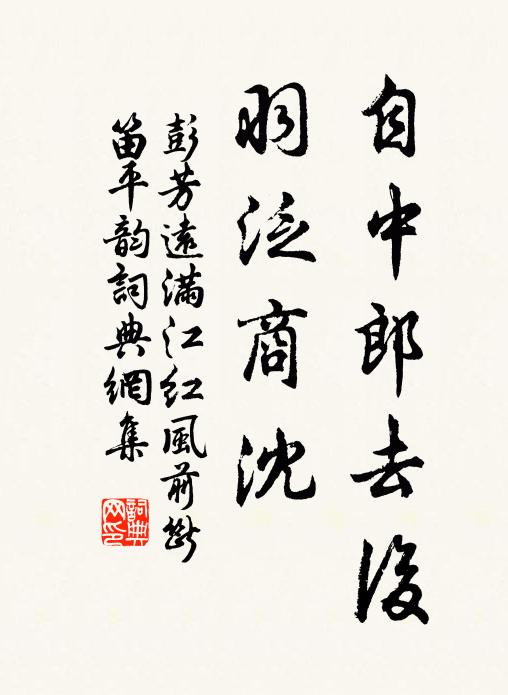 自中郎去後
羽泛商沈
彭芳遠滿江紅風前斷
笛平韵詞典網集
詞典网印